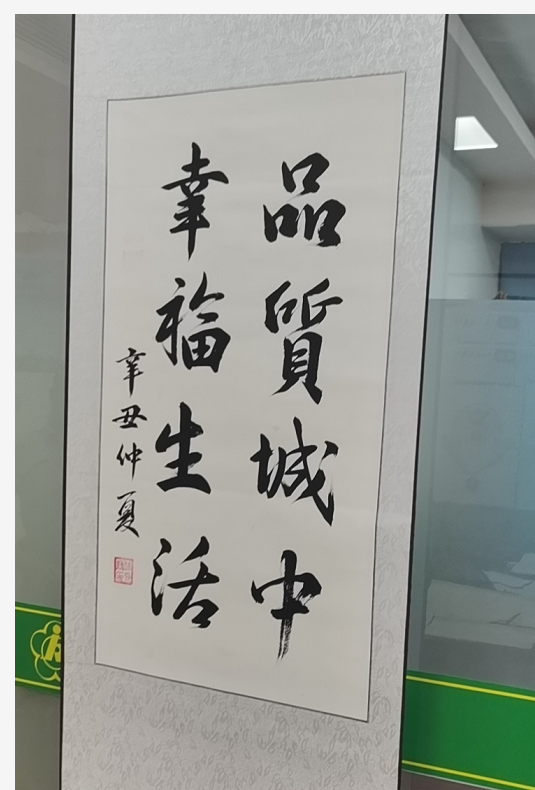 品質城中
幸福生活
辛丑仲夏